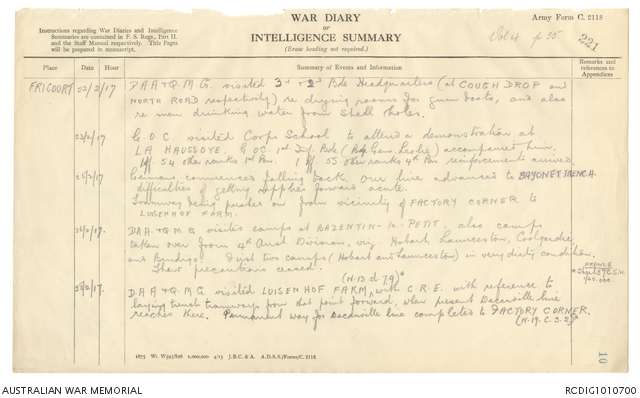 Instructions regarding War Diaries and Intelligence
Summaries are contained in F. S. Regs., Part II.
and the Staff Manual respectively. Title Pages
will be prepared in manuscript.
WAR DIARY
OR
INTELLIGENCE SUMMARY
(Erase heading not required.)
Army Form C. 2118
221
Place
Date
Hour
Summary of Events and Information
Remarks and
references to
Appendices
FRICOURT 22/2/17 DAA+Q.M.G. visited 3rd & 2nd Bde Headquarters (at COUGH DROP and
NORTH ROAD respectively) re drying rooms for gum boots, and also
re men drinking water from Shell Holes.
23/2/17 G.O.C. visited Corps School to attend a demonstration at
LA HAUSSOYE. G.O.C. 1st Inf. Bde (Brig. Gen. Leslie) accompanied him.
54 other ranks 1st Bn. 55 other ranks 4th Bn reinforcements arrived.
Germans commenced falling back. Our line advanced to BAYONET TRENCH.
difficulties of getting supplies forward acute.
Tramway being pushed on from vicinity of FACTORY CORNER to
LUISENHOF FARM.
DAA+Q.M.G visited camps at BAZENTIN-le-PETIT, also camps
taken over from 4th Aust Division, viz. Hobart, Launceston, Coolgardie,
and Bendigo. First two camps (Hobart and Launceston) in very dirty condition.
(M.13.d.79)*
DAA+Q.M.G visited LUISENHOF FARM, with C.R.E. with reference to
laying trench tramways from that point forward, when present Decauville line
reaches there. Permanent way for Decauville line completed to FACTORY CORNER.
1875 Wt. W593/826 1,000,000 4/15 J.B.C. & A. A.D.S.S./Forms/C. 2118.
10
AUSTRALIAN WAR MEMORIAL
RCDIG1010700